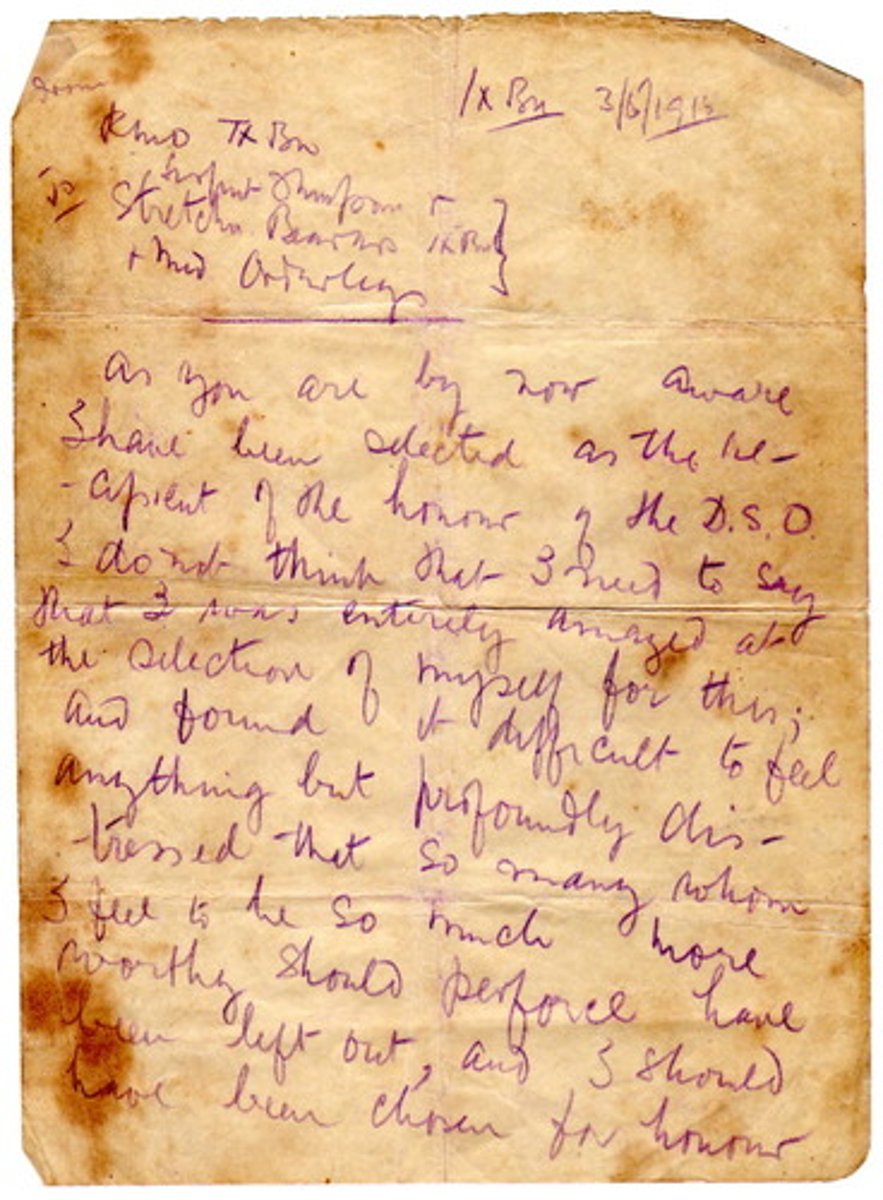 from
IX Bn 3/6/1915
RMO IX Bn
to Sergeant Thompson +
Stretcher Bearers IX Bn
+ Med Orderlies
As you are by now aware
I have been selected as the re-
-cipient of the honour of the D.S.O.
I do not think that I need to say
that I was entirely amazed at
the selection of myself for this;
and found it difficult to feel
anything but profoundly dis-
-tressed that so many whom
I feel to be so much more
worthy should perforce have
been left out, and I should
have been chosen for honour